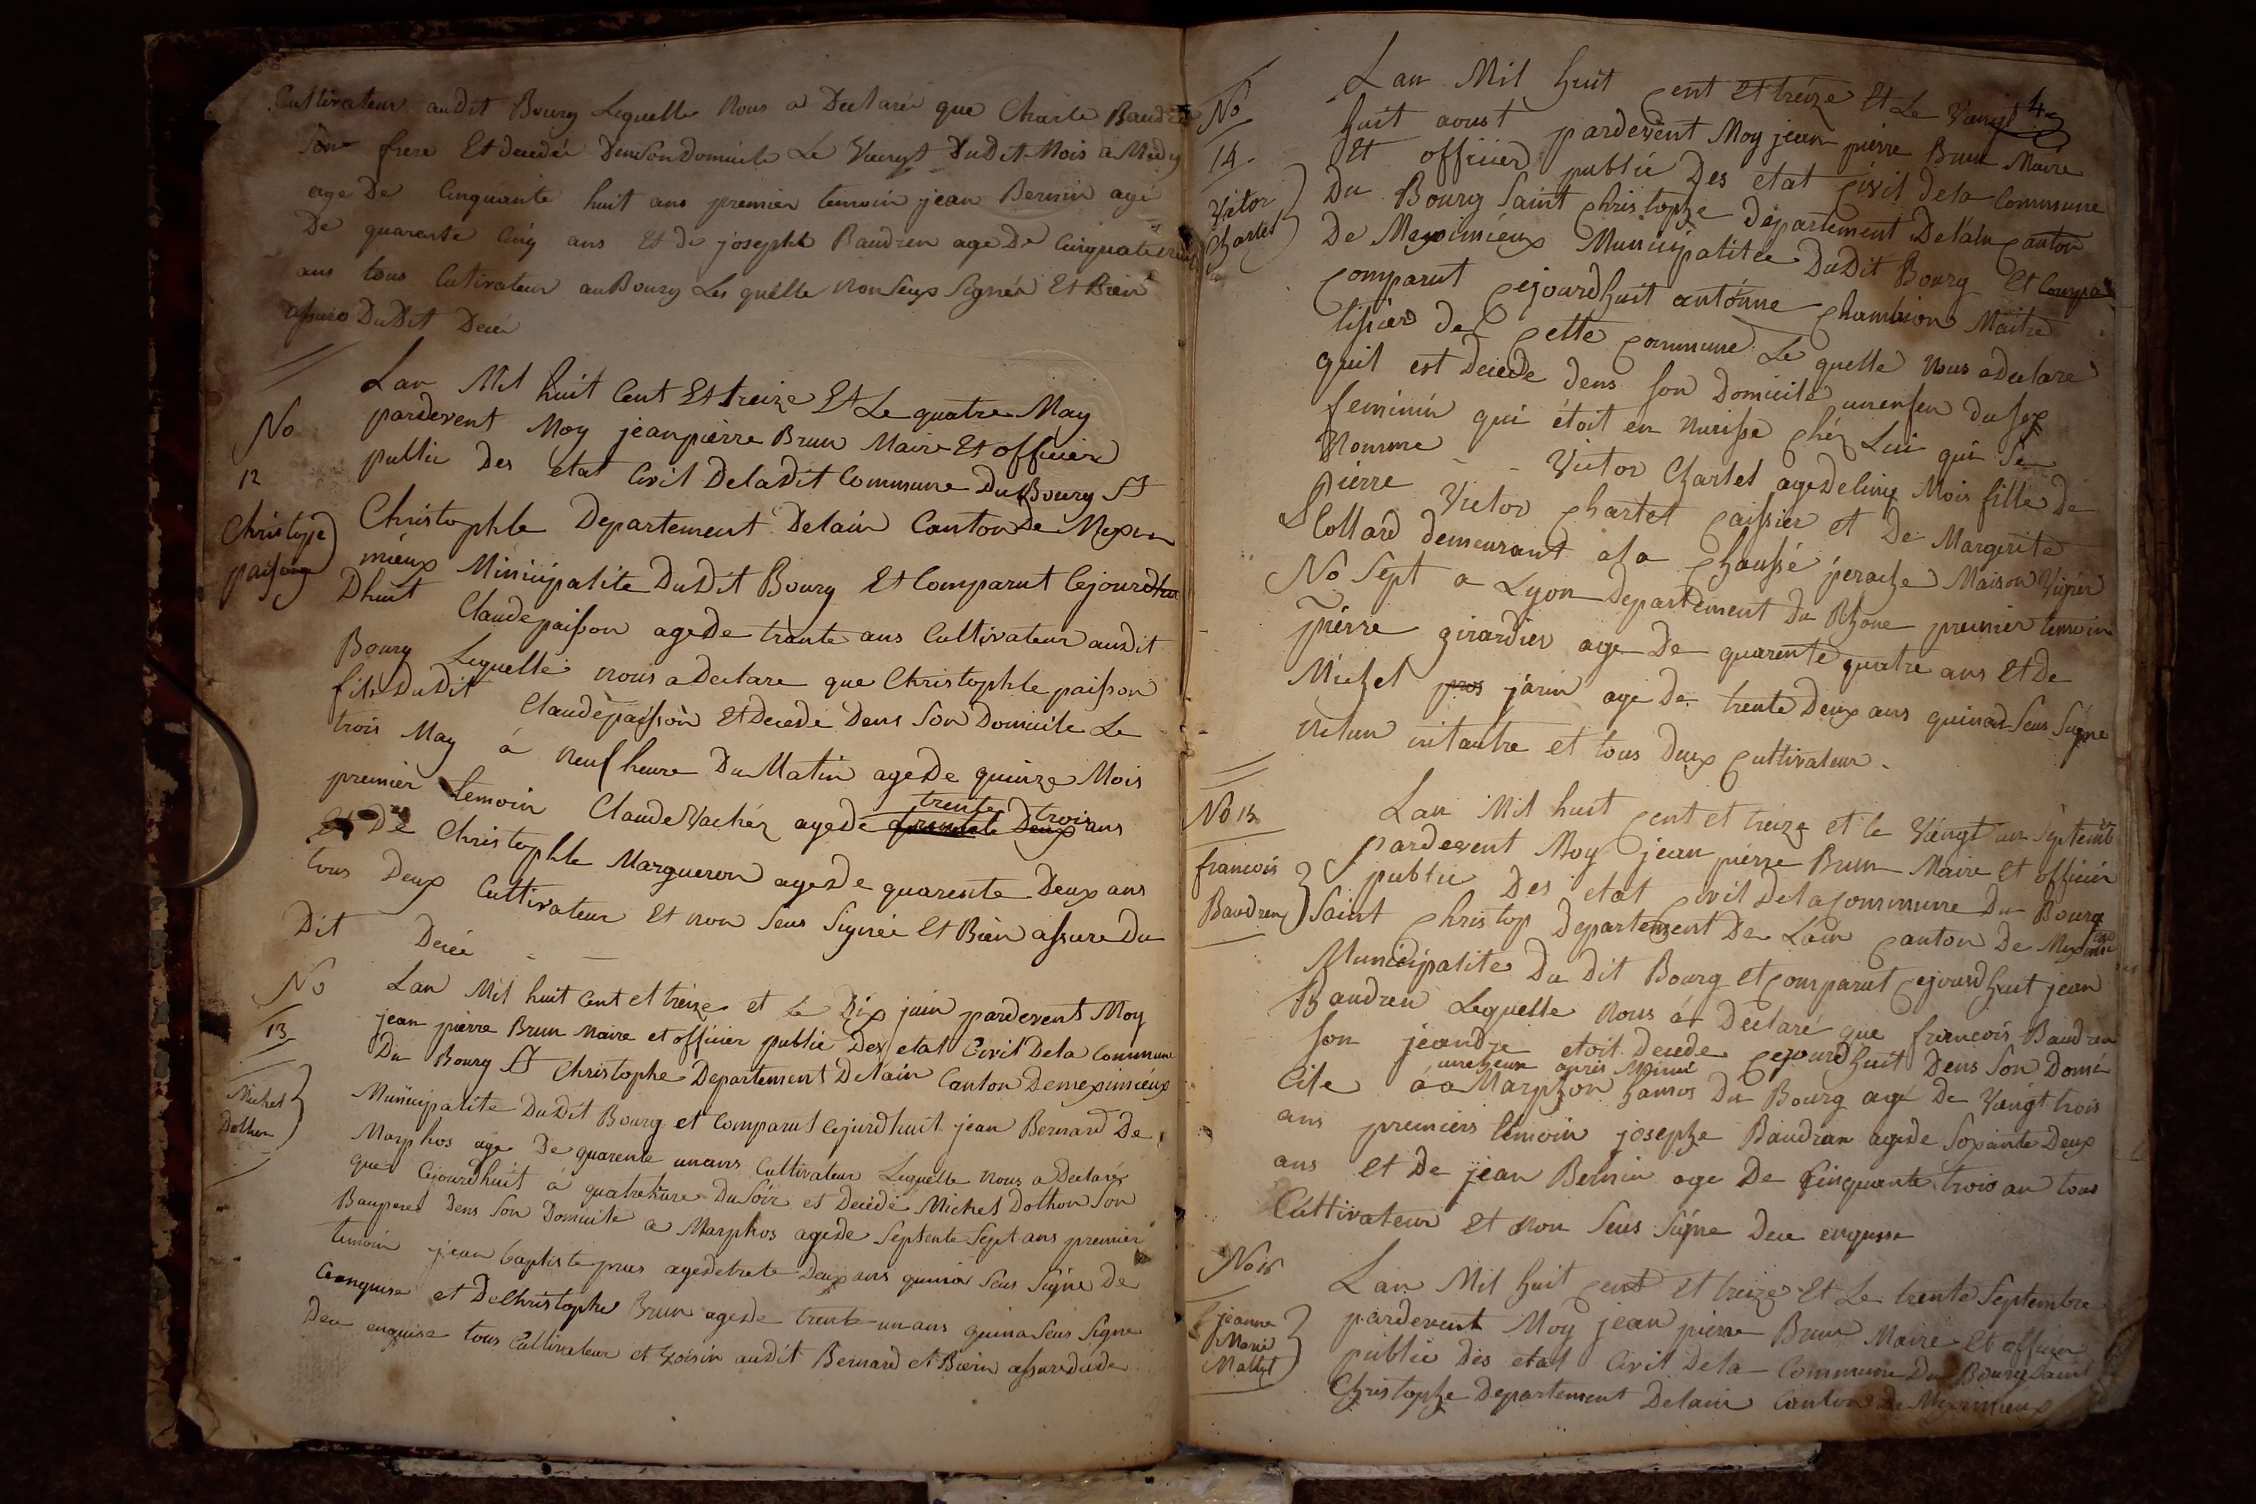 Cultivateur audit Bourg Lequelle nous a Declaréé que Charle Baudren
son frere Et decedéé Dens son Domicile Le Vaingt DuDit Mois a Midy
age De Cinquante huit ans premier temoin jean Bernin agé
De quarente Cinq ans Et de josephle Baudren age De Cinquate
ans tous Cutivateur au Bourg Les quelle non seus Signér Et Bien
assuré DuDit Decé
No
12
Christope
paisson
Lan Mil huit Cent Et treize Et Le quatre May
pardevent Moy jean pierre Brun Maire Et officier
public Des etat Civil De la Dit Commune Du Bourg St
Christophle Departement Delain Canton De Mexi
mieux Municipalite DuDit Bourg Et Comparut Cejourd
Dhuit Claude paisson age De trante ans Cultivateur audit
Bourg Lequelle nous a Declare que Christophle paisson
fils DuDit Claude paisson Et Decede Dens Son Domicile Le
trois May á neuf heure Du Matin age De quinze Mois
premier temoin Claude Vachéz age de trente trois ans
et De Christophle Margueron age De quarente Deux ans
tous Deux Cultivateur Et non Seus Signéé Et Bien assure Du
Dit Decéé
No
13
Michel
Dothon
Lan Mil huit Cent et treize et Le Dix juin pardevent Moy
jean pierre Brun Maire et officier public Des etat Civil De la Commune
Du Bourg St Christophe Departement Delain Canton Demeximieux
Municipalite DuDit Bourg et Comparut Cejurdhuit jean Bernard De
Marphos age De quarente un ans Cultivateur Lequelle nous a Declaré
que Cejourdhuit á quatre hure Du Soir et Decedé Michel Dothon Son
Bauperes Dens Son Domicile a Marphos age de Septente Sept ans premier
temoin jean baptiste pras age de trete Deux ans quina Seus Signe De
Ceenquise et De Christophe Brun age de trente un ans quina Seus Signe
Deu enquise tous Cultivateur et Voisin audit Bernard et Bien assuredude
4
No
14
Victor
Chartet
Lan Mil huit Cent Et treize Et Le Vaingt
huit aoust pardevent Moy jean pierre Brun Maire
Et officier public Des etat Civil de la Commune
Du Bourg Saint Christophe departement Delain Canton
De Meximieux Municipalitee DuDit Bourg Et
Comparut Cejourdhuit antoinne Chambion Maitre
tissier de Cette Commune Le quelle nous a Declare
quil est Decede dens Son Domicile un enfen du sex
feminin qui étoit en nurisse Chéz Lui qui Se
nomme Victor Chartet age De Cinq Mois fille De
pierre Victor Chartet Caissier et De Margerite
Collard demeurant a la Chaussé perache Maison Vigier
No Sept a Lyon Departement Du Rhone premier temoin
pierre girardier age De quarente quatre ans Et De
Michel pras jarin age De trente Deux ans quinont Seus Signe
nilun nilautre et tous Deux Cultivateur.
No 15
francois
Baudren
Lan Mil huit Cent et treize et le Vaingt un Septemb
pardevent Moy jean pierre Brun Maire et officier
public Des etat Civil De la Commune Du Bourg
Saint Christop Departement De Lain Canton De
Municipalite Du Dit Bourg et Comparut Cejourdhuit jean
Baudren Lequelle nous á Déclaré que francois Baudren
Son jeandre etoit Decede Cejourdhuit Dens Son Domi
une heure apres Minui
Cile á a Marphon hamos Du Bourg agé De Vaingt trois
ans premiers temoin josephe Baudran age de Soxante Deux
ans et De jean Bernin age De Cinquante trois an tous
Cultivateur Et non Seus Signe Dece enquise
No 16
jeanne
Marie
Mallet
Lan Mil huit Cent Et treize Et Le trente Septembre
pardevent Moy jean pierre Brun Maire et officier
public Des etat Civil De la Commune Du Bourg Saint
Christophe Departement Delain Canton De Meximieux